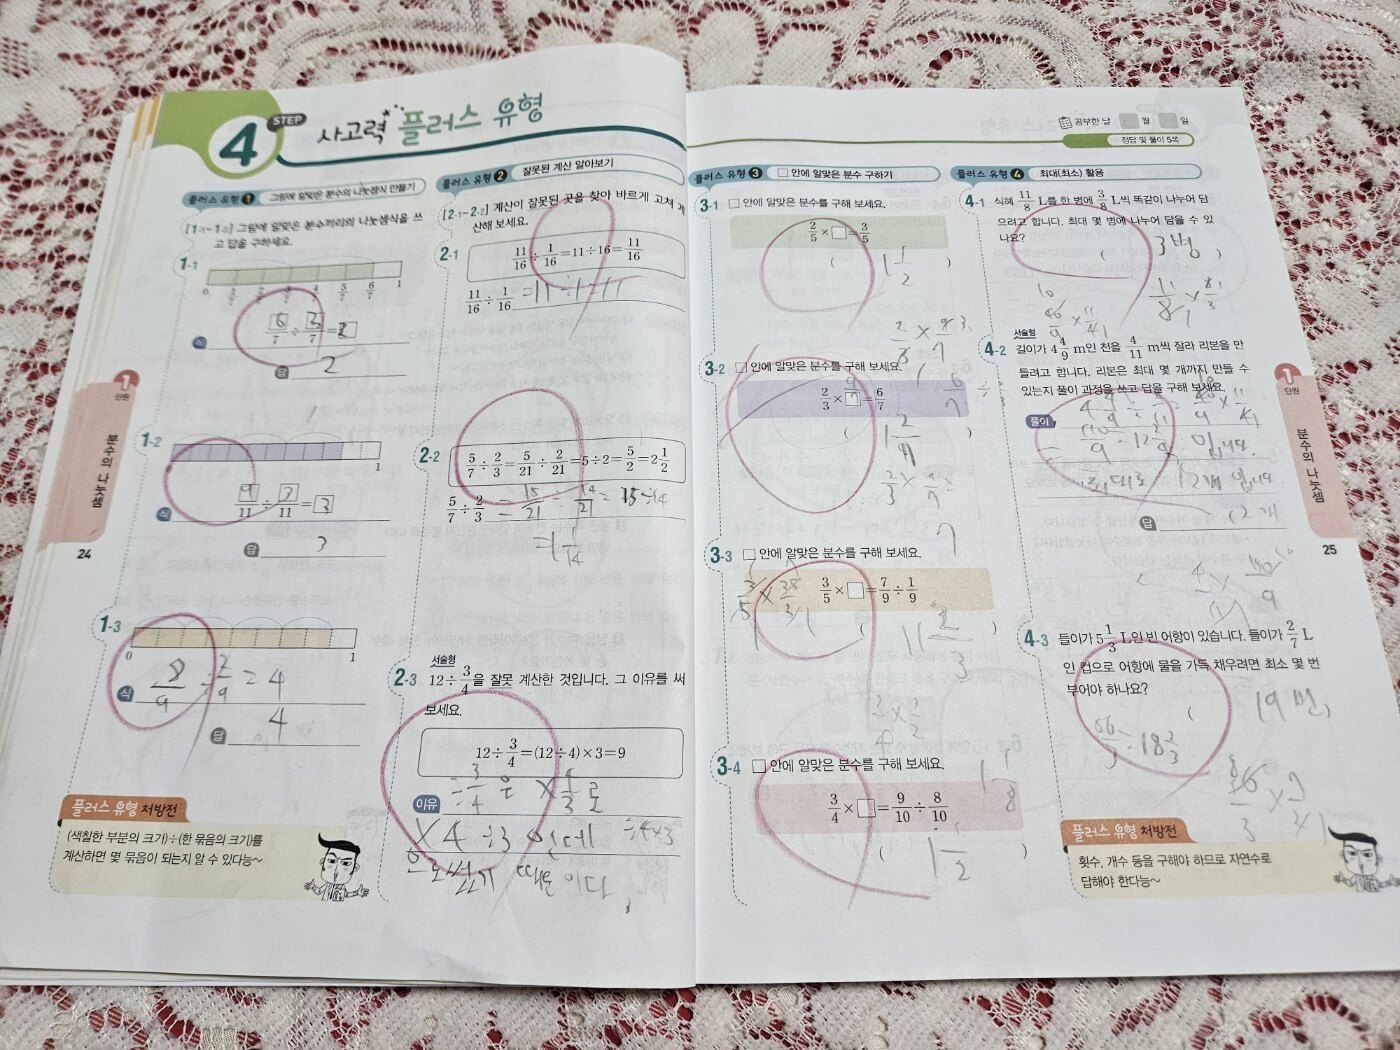 4 STEP 사고력 플러스 유형
플러스 유형 1 그림에 알맞은 분수의 나눗셈식 만들기
[1-1~1-3] 그림에 알맞은 분수끼리의 나눗셈식을 쓰고 답을 구하세요.
1-1
0 1/7 2/7 3/7 4/7 5/7 6/7 1
식 6/7 ÷ 3/7 = 2
답 2
1-2
1
식 9/11 ÷ 3/11 = 3
답 3
1-3
0 1
식 8/9 ÷ 2/9 = 4
답 4
플러스 유형 처방전
(색칠한 부분의 크기)÷(한 묶음의 크기)를
계산하면 몇 묶음이 되는지 알 수 있다능~
1 단원
분수의 나눗셈
24
플러스 유형 2 잘못된 계산 알아보기
[2-1~2-2] 계산이 잘못된 곳을 찾아 바르게 고쳐 계
산해 보세요.
2-1
11/16 ÷ 1/16 = 11÷16 = 11/16
11/16 ÷ 1/16 = 11÷1=11
2-2
5/7 ÷ 2/3 = 5/21 ÷ 2/21 = 5÷2 = 5/2 = 2 1/2
5/7 ÷ 2/3 = 15/21 ÷ 14/21 = 15÷14
= 1 1/14
서술형
2-3 12÷3/4을 잘못 계산한 것입니다. 그 이유를 써
보세요.
12÷3/4=(12÷4)×3=9
÷3/4 는 ×4/3 로
이유 ×4 ÷3 인데 ÷4×3
으로 썼기 때문이다.
공부한 날 월 일
정답 및 풀이 5쪽
플러스 유형 3 □ 안에 알맞은 분수 구하기
3-1 □ 안에 알맞은 분수를 구해 보세요.
2/5 × □ = 3/5
( 1 1/2 )
3-2 □ 안에 알맞은 분수를 구해 보세요.
2/3 × □ = 6/7
( 1 2/7
3-3 □ 안에 알맞은 분수를 구해 보세요.
3/5 × □ = 7/9 ÷ 1/9
11 2/3
3-4 □ 안에 알맞은 분수를 구해 보세요.
3/4 × □ = 9/10 ÷ 8/10
1 1/8
( 1 1/2 )
플러스 유형 4 최대(최소) 활용
4-1 식혜 11/8 L를 한 병에 3/8 L씩 똑같이 나누어 담
으려고 합니다. 최대 몇 병에 나누어 담을 수 있
나요?
( 3병 )
11/8 × 8/3
서술형
4-2 길이가 4 4/9 m인 천을 4/11 m씩 잘라 리본을 만
들려고 합니다. 리본은 최대 몇 개까지 만들 수
있는지 풀이 과정을 쓰고 답을 구해 보세요.
풀이
110/9 = 12 2/9 입니다.
최대로 12개 입니다
답 12개
4-3 들이가 5 1/3 L인 빈 어항이 있습니다. 들이가 2/7 L
인 컵으로 어항에 물을 가득 채우려면 최소 몇 번
부어야 하나요?
( 19번 )
56/3 = 18 2/3
플러스 유형 처방전
횟수, 개수 등을 구해야 하므로 자연수로
답해야 한다능~
1 단원
분수의 나눗셈
25